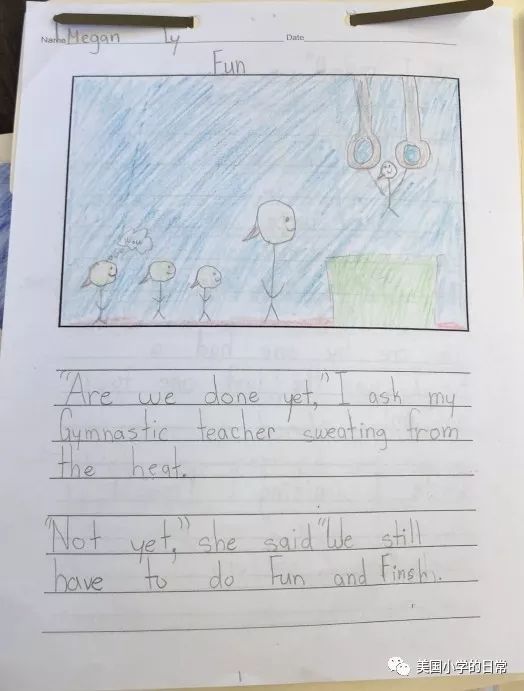 Name Megan Ly Date
Fun
wow
"Are we done yet," I ask my
Gymnastic teacher sweating from
the heat.
"Not yet," she said "We still
have to do Fun and Finsh.
1
美国小学的日常